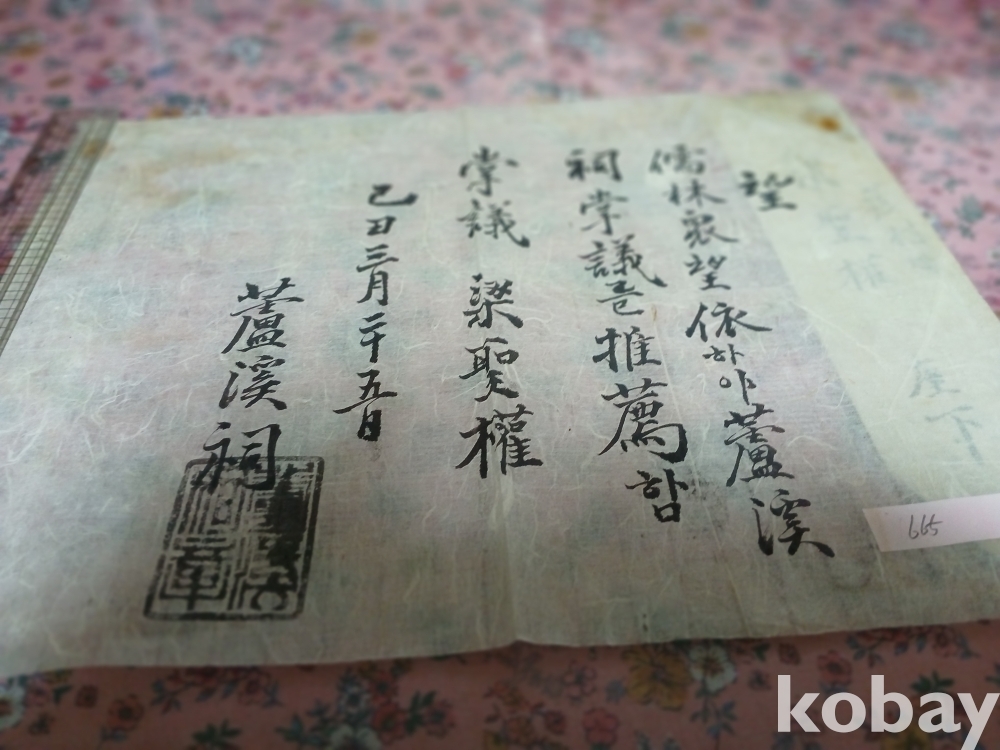 望
儒林衆望依하야蘆溪
祠掌議로推薦함
掌議 梁聖權
己丑三月二十五日
蘆溪祠
座下
665
kobay